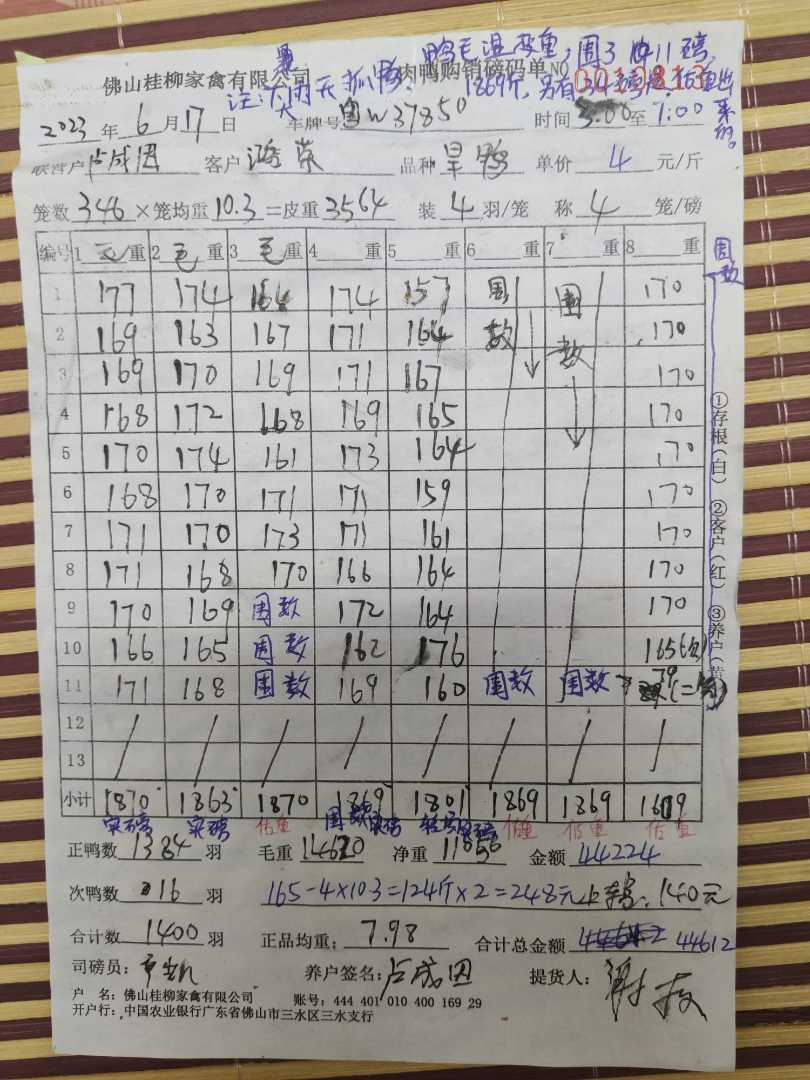 鸭毛湿很重，周3 11磅，
佛山桂柳家禽有限公司 肉鸭购销磅码单 NO
注：大雨天抓鸭 1869斤，另有34 估重出来的。
2023 年 6 月 17 日 车牌号 W37850 时间 3:00 至 7:00
联营户 卢成因 客户 鸿荣 品种 旱鸭 单价 4 元/斤
笼数 346 ×笼均重 10.3 =皮重 3564 装 4 羽/笼 称 4 笼/磅
编号 1 毛/重 2 毛 重 3 毛/重 4 重 5 重 6 重 7 重 8 重 周数
1 177 174 164 174 157 周数 周数 170
2 169 163 167 171 164 170
3 169 170 169 171 167 170
4 168 172 168 169 165 170
5 170 174 161 173 164 170
6 168 170 171 171 159 170
7 171 170 173 171 161 170
8 171 168 170 166 164 170
9 170 169 周数 172 164 170
10 166 165 周数 162 176 165
11 171 168 周数 169 160 周数 周数 79
12 / / / / / / / /
13
小计 1870 1863 1870 1869 1801 1869 1869 1609
实磅 实磅 估重 周数 实磅 估重 估重 估重
正鸭数 1384 羽 毛重 14620 净重 11056 金额 44224
次鸭数 16 羽 165-4×10.3=124斤×2=248元 140元
合计数 1400 羽 正品均重: 7.98 合计总金额 44612
司磅员: 养户签名: 卢成因 提货人:
户 名: 佛山桂柳家禽有限公司 账号: 444 401 010 400 169 29
开户行: 中国农业银行广东省佛山市三水区三水支行
①存根(白) ②客户(红) ③养户(黄